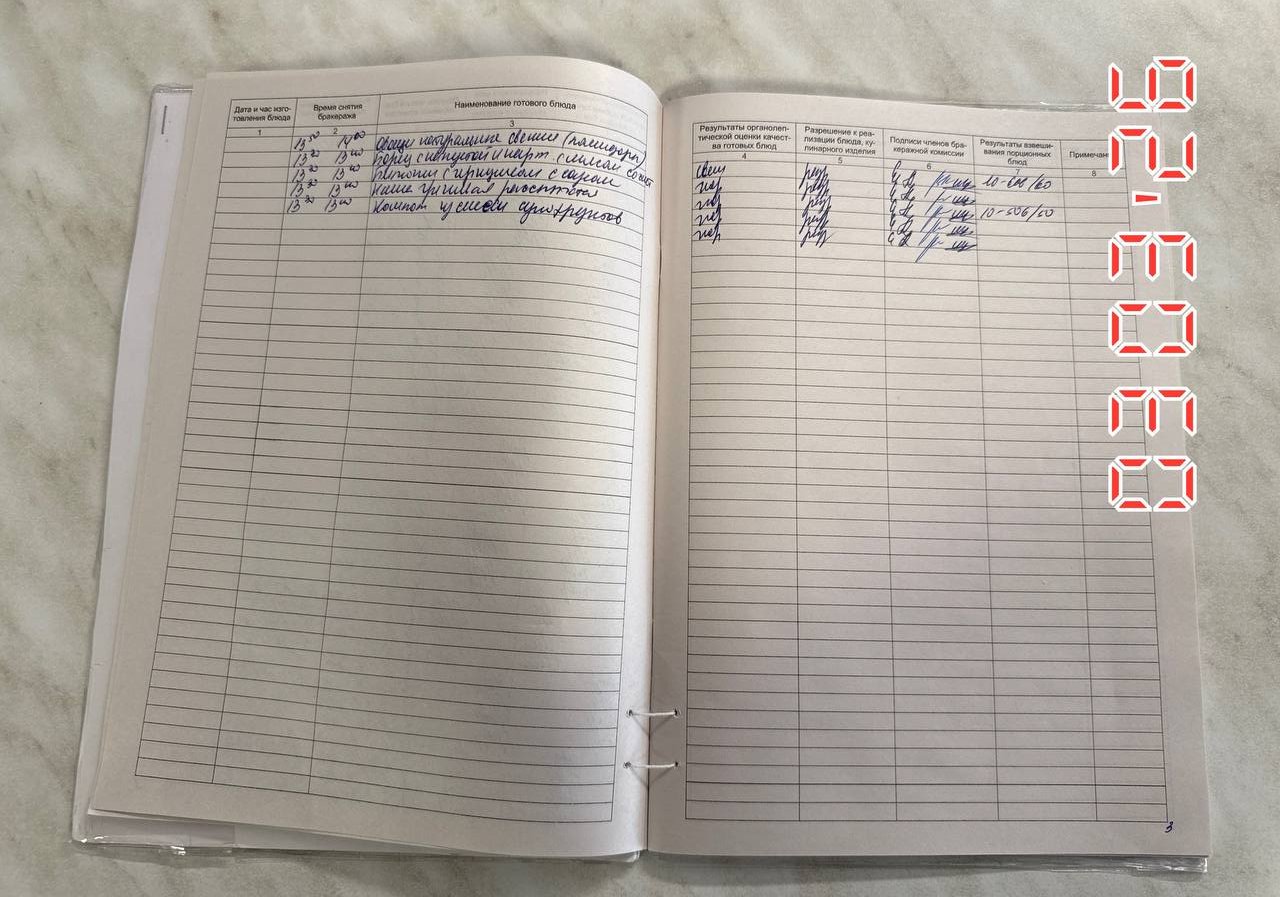 Дата и час изго-
товления блюда
Время снятия
бракеража
Наименование готового блюда
1
2
3
13 50 14 00 Овощи натуральные свежие (помидоры)
13 30 13 40 Борщ с капустой и карт с мясом со смет
13 30 13 40 с сыром
13 30 13 40 Каша гречневая рассыпчатая
13 30 13 40 Компот из смеси сухофруктов
Результаты органолеп-
тической оценки качест-
ва готовых блюд
Разрешение к реа-
лизации блюда, ку-
линарного изделия
Подписи членов бра-
керажной комиссии
Результаты взвеши-
вания порционных
блюд
Примечан
4
5
6
7
8
свеж разр
хор разр
хор разр
хор разр
хор разр
3
030326